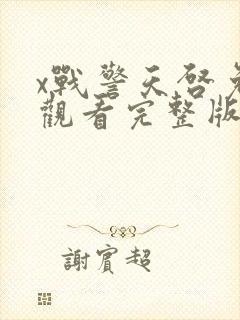 x戰警天啓
觀看完整版
謝賓超